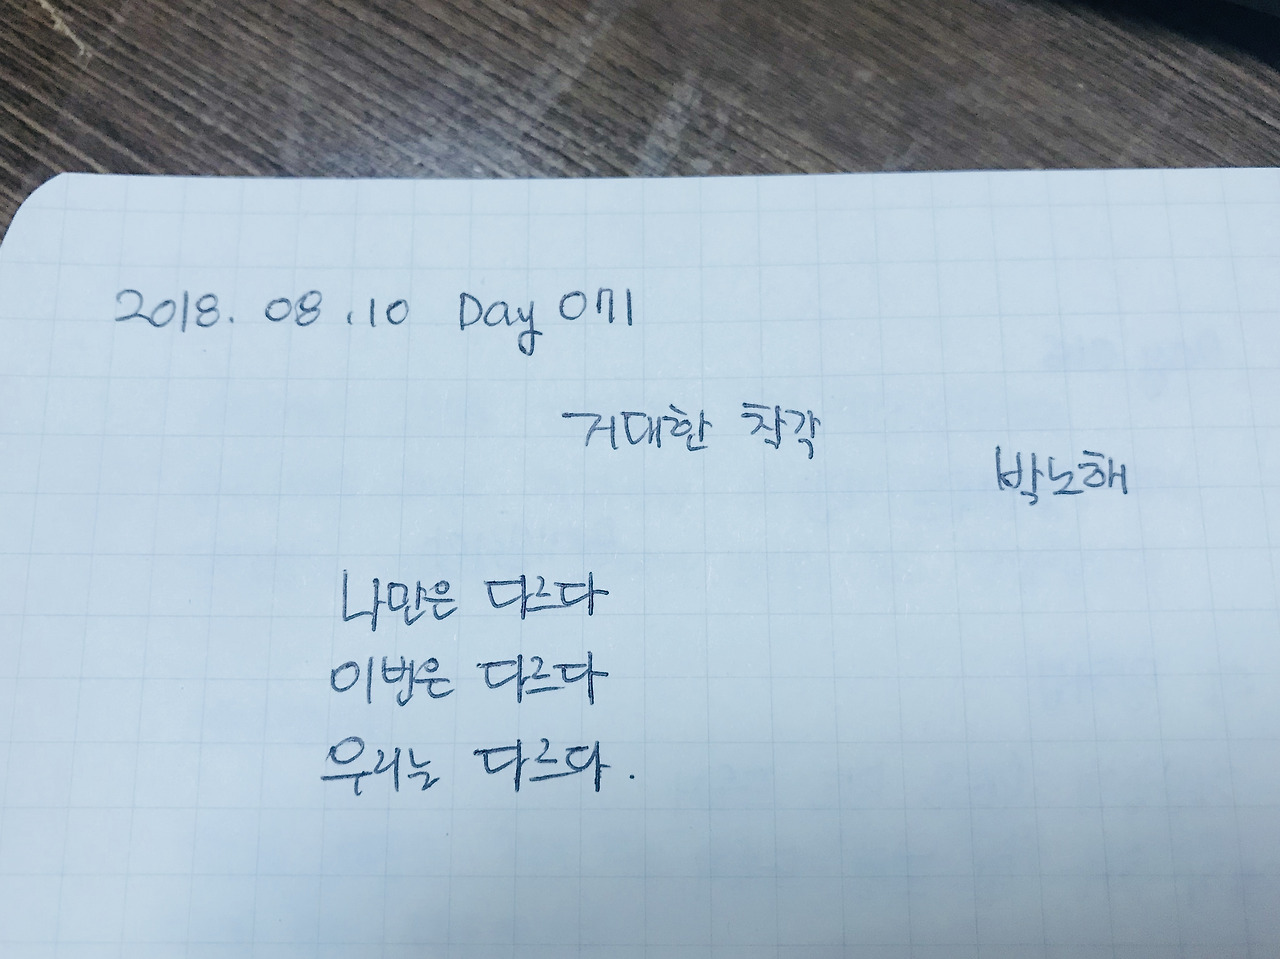 2018. 08 .10 Day 071
거대한 착각
박노해
나만은 다르다
이번은 다르다
우리는 다르다.